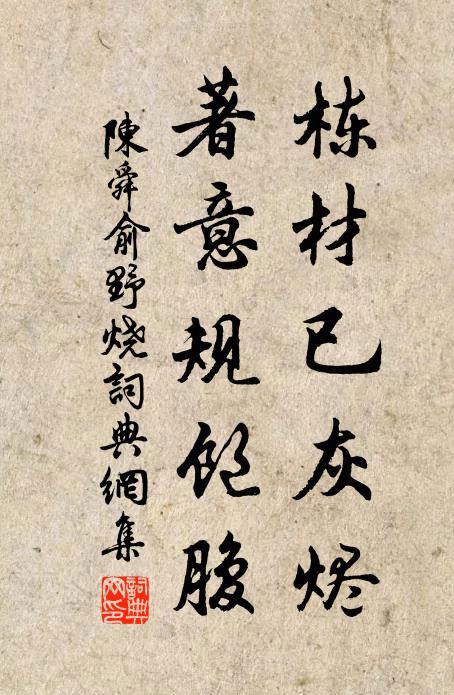 栋材已灰烬
著意规饱腹
陳舜俞野烧詞典網集
詞典网印